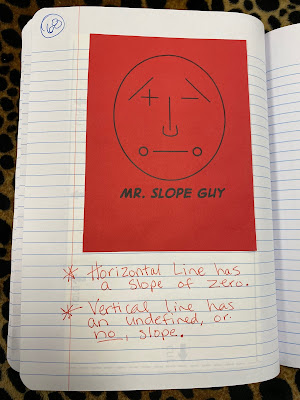 68
+ −
MR. SLOPE GUY
* Horizontal Line has
a slope of zero.
* Vertical line has
an undefined, or
no, slope.